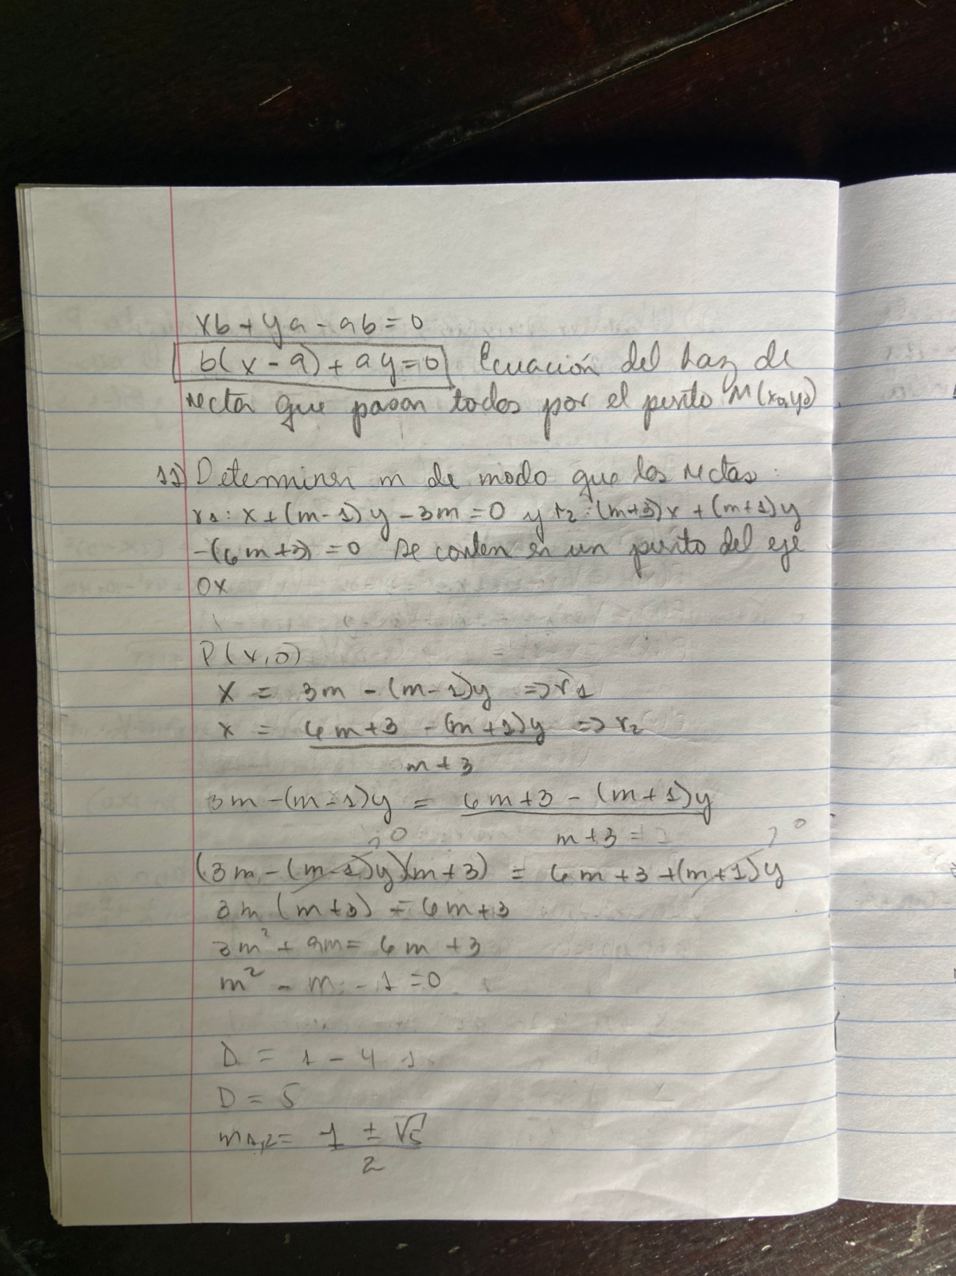 xb + ya - ab = 0
b(x - a) + ay = 0 Ecuación del haz de
recta que pasan todos por el punto M(x0,y0)
11) Determinen m de modo que las rectas :
r1: x + (m-1)y - 3m = 0 y r2: (m+3)x + (m+1)y
-(6m+3) = 0 se corten en un punto del eje
OX
P(x,0)
x = 3m - (m-1)y => r1
x = 6m+3 - (m+1)y => r2
m+3
3m - (m-1)y = 6m+3 - (m+1)y
m+3 =
0 0
(3m - (m-1)y)(m+3) = 6m+3 + (m+1)y
3m(m+3) = 6m+3
3m² + 9m = 6m + 3
m² - m - 1 = 0
D = 1 - 4 1
D = 5
m1,2 = -1 ± √5
2